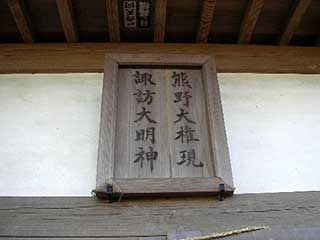 熊野大権現
諏訪大明神